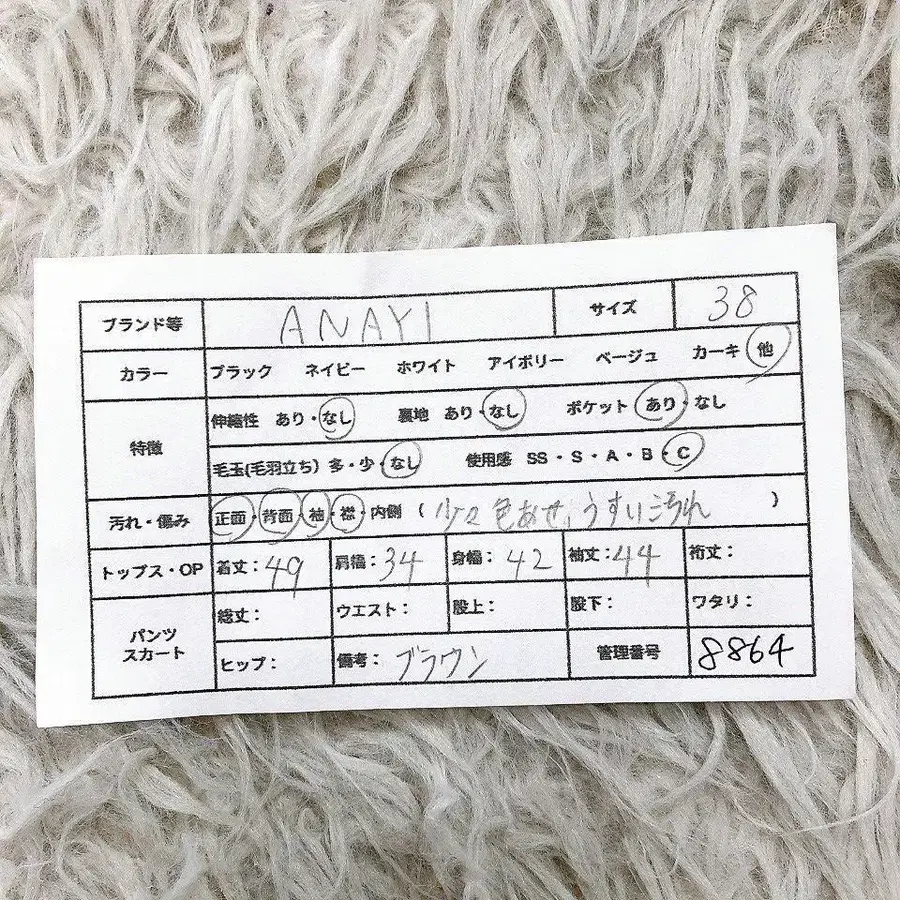 ブランド等 ANAYI サイズ 38
カラー ブラック ネイビー ホワイト アイボリー ベージュ カーキ 他
特徴
伸縮性 あり・なし 裏地 あり・なし ポケット あり・なし
毛玉(毛羽立ち) 多・少・なし 使用感 SS・S・A・B・C
汚れ・傷み 正面・背面・袖・襟・内側 ( 少々色あせ、うすい汚れ )
トップス・OP 着丈：49 肩幅：34 身幅：42 袖丈：44 裄丈：
パンツ
スカート
総丈： ウエスト： 股上： 股下： ワタリ：
ヒップ： 備考：ブラウン 管理番号 8864